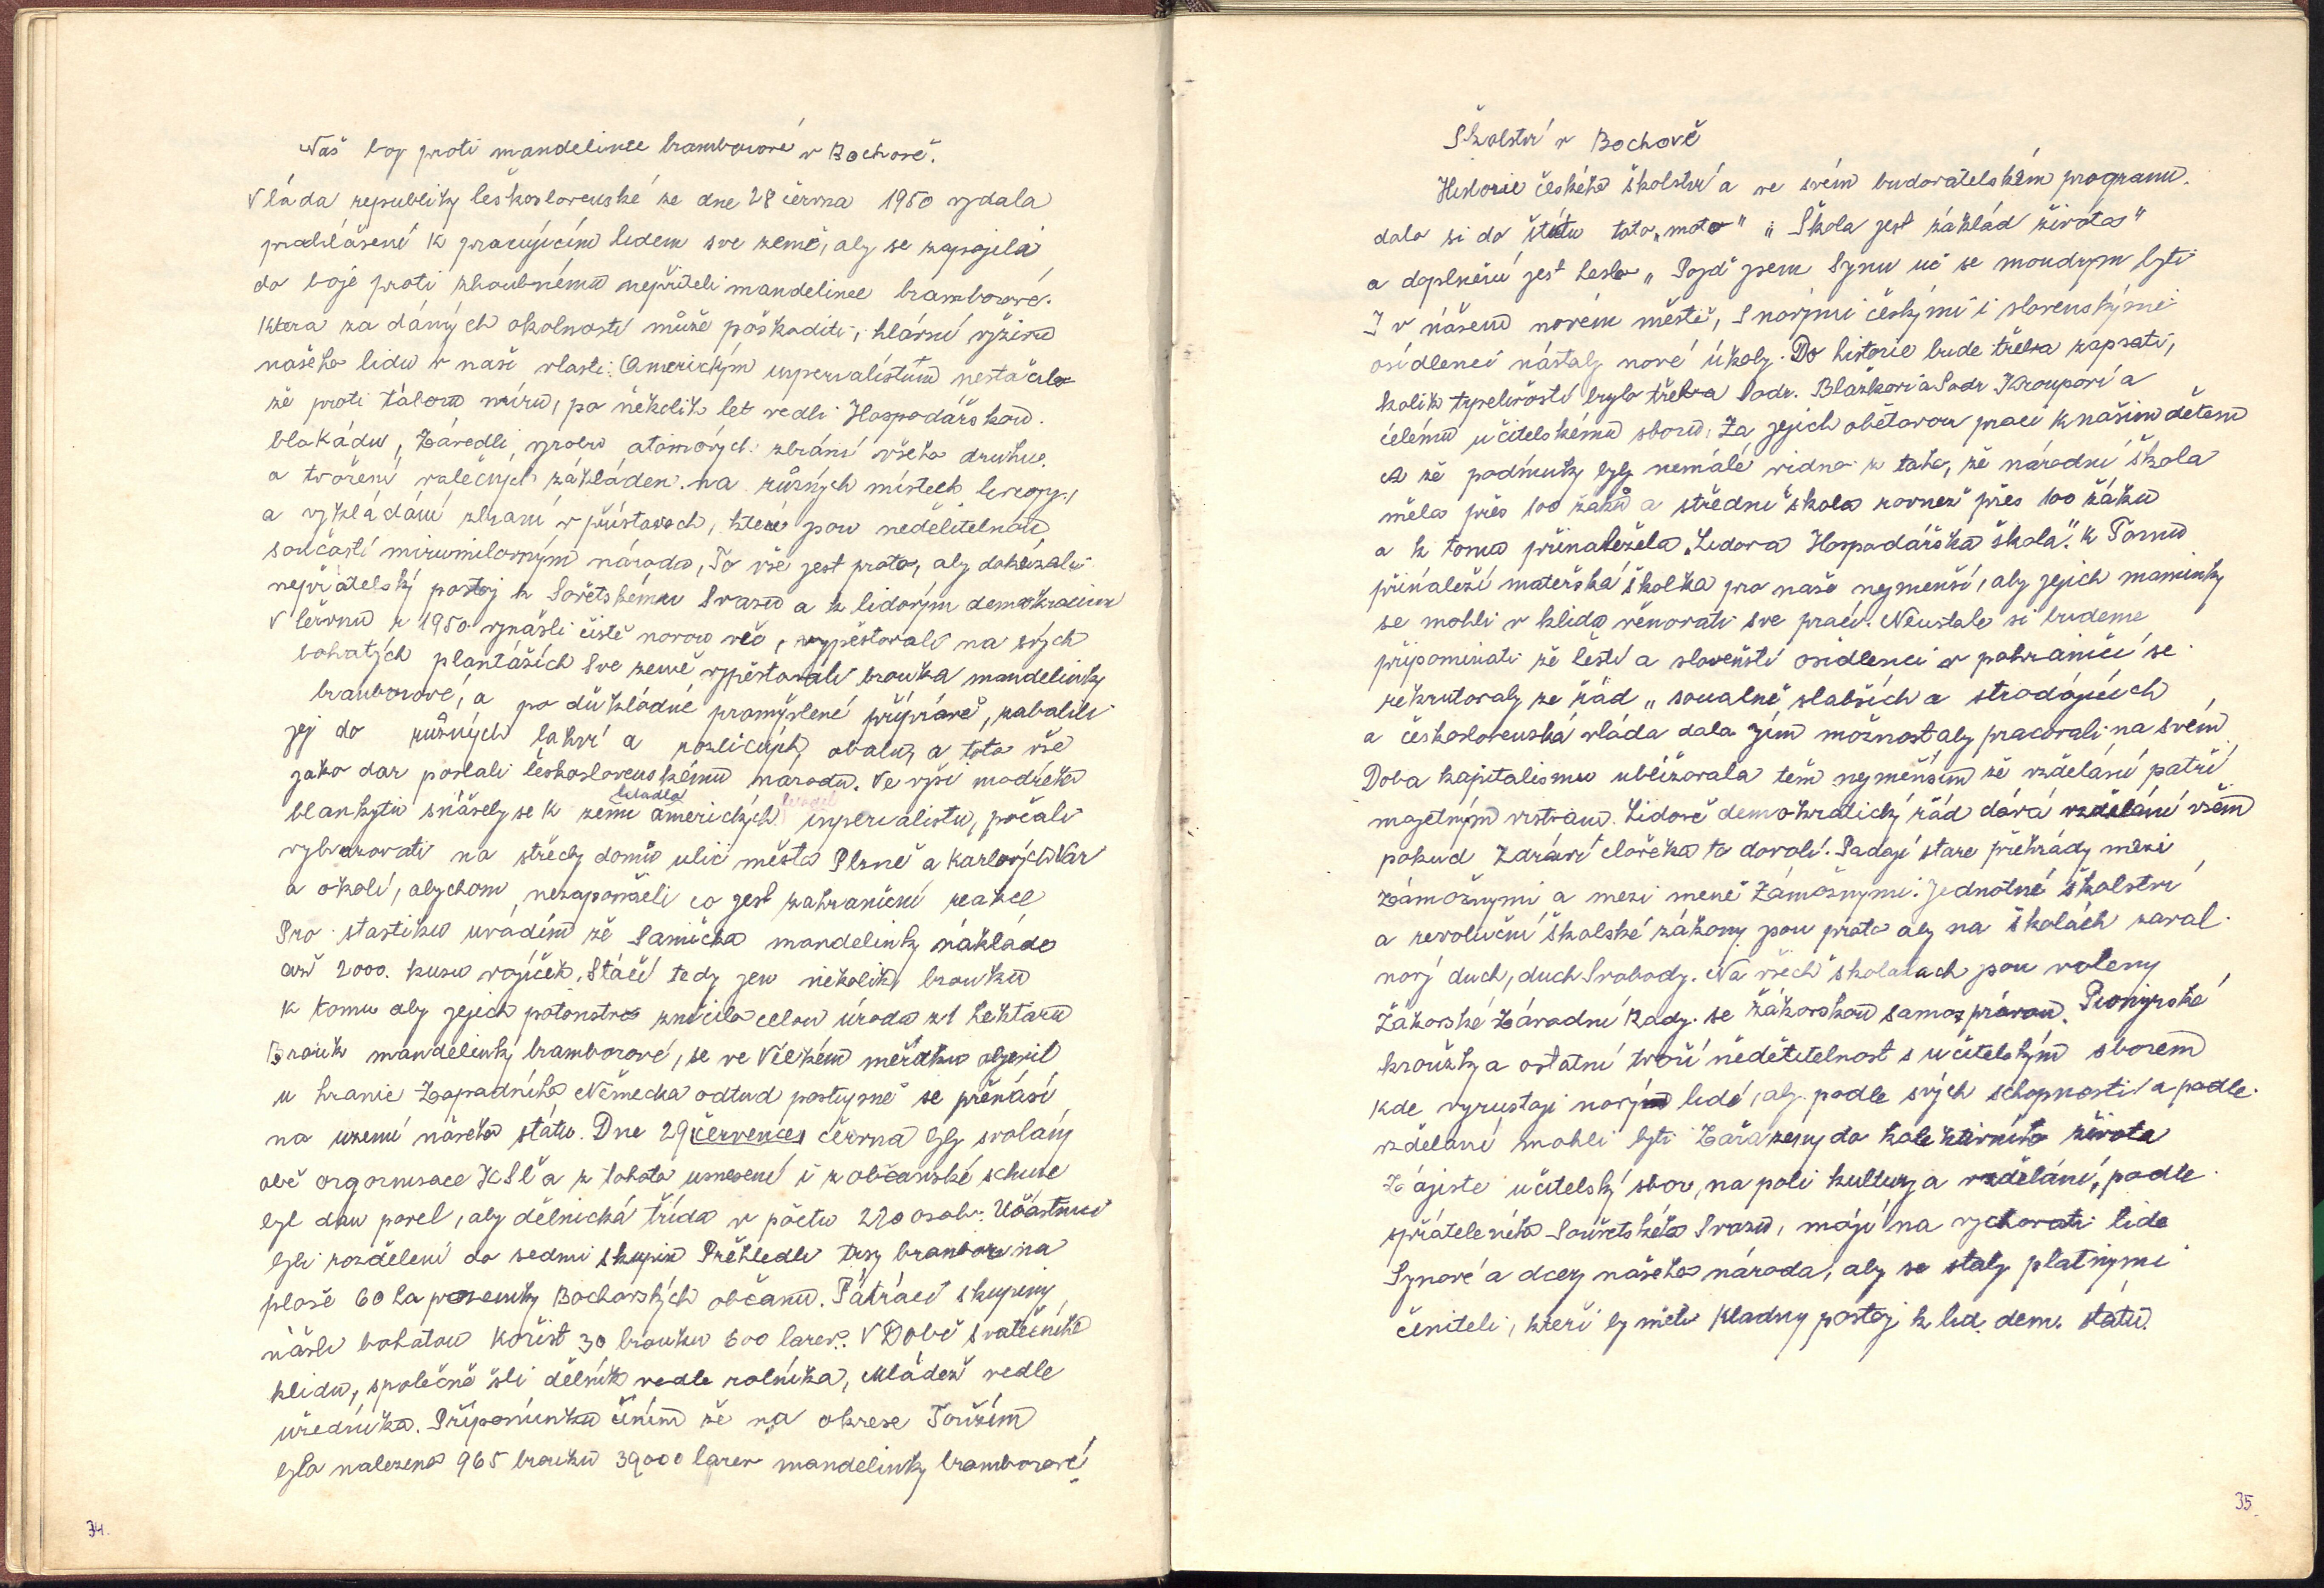 Náš boj proti mandelince bramborové v Bochově.
Vláda republiky československé ze dne 28 června 1950 vydala
prohlášení k pracujícím lidem své země, aby se zapojila
do boje proti zhoubnému nepříteli mandelince bramborové.
Která za dáných okolností může poškoditi, hlávní výživu
našeho lidu v naší vlasti. Americkým inperialistům nestačilo
že proti táboru míru, po několik let vedli Hospodářskou.
blokádu, Závedli výrobu atomových zbrání všeho druhu.
a tvoření válečných základen. na různých místech Evropy,
a vykládání zbraní v přístavech, které jsou nedělitelnou
součástí mirumilovným národů, To vše jest proto, aby dokázali
nepřátelský postoj k Sovětskému Svazu a k lidovým demokraciím
V červnu r 1950. vynášli čistě novou věc, vypěstovali na svých
bohatých plantážích Sve země vypěstovali brouka mandelinky
bramborové, a po důkládné promýšlené přípravě, zabalili
jej do růžných lahví a rozličných obalů, a toto vše
jako dar poslali československému národu. Ve výši modrého
blankytu snášely se k zemi americkych inperialistu, počali
letadla
letadel
vyhazovati na střechy domů ulic města Plzně a Karlových Var
a okolí, abychom nezapoměli co jest zahraniční reakce
Pro stastiku uvádím že Samička mandelinky náklade
až 2000. kusů vajíček. Stačí tedy jen několik brouků
k tomu aby jejich potomstvo zničilo celou úrodu z 1 hektaru
Brouk mandelinky bramborové, se ve Velkém měřítku objevil
u hranic Západního Německa odtud postupně se přenáší
na uzemí nášeho státu. Dne 29 července června byly svolány
obě organisace KSČ a z tohoto usnesení i z občanské schuze
byl dan povel, aby dělnická třída v počtu 220 osob. Učástnici
byli rozděleni do sedmi skupin Přehledli trsy brambor na
ploše 60 ha pozemky Bochovských občanu. Pátrací skupiny
našli bohatou kořist 30 brouku 600 larev. V Době svátečního
klidu, společně šli dělník vedle rolníka, Mládež vedle
uředníka. Připomínku činím že na okrese Toužim
bylo nalezeno 965 brouku 39000 larev mandelinky bramborové.
34.
Školství v Bochově
Historie českého školství a ve svém budovatelském programu.
dala si do štítu toto „moto" „ Škola jest základ života"
a doplnění jest heslo „ Pojď jsem Synu uč se moudrym byti
I v nášem novém městě, S novými českými i slovenskými
osídlenci nástaly nové úkoly. Do historie bude třeba zapsati,
kolik trpelivosti bylo třeba Sodr. Blažkovi a Sodr Kroupovi a
celému učitelskému sboru, Za jejich obětavou praci k našim dětem
A že podmínky byly nemálé vidno z toho, že národní škola
měla přes 100 žaků a střední škola rovnež přes 100 žáku
a k tomu přinaležela „Lidova Hospodářska škola". K Tomu
přináleží mateřská školka pro naše nejmenší, aby jejich maminky
se mohli v klidu věnovati sve práci. Neustale si budeme
připominati že čeští a slovenští osidlenci v pohraničí se
rekrutovaly ze řád „ socialně slabších a strádajících
a československá vláda dala jim možnost aby pracovali na svém
Doba kapitalismu ubližovala těm nejmenším že vzdělání patří
majetným vrstvám. Lidově demokratický řád dává vzdělání všem
pokud Zdraví človčka to dovolí. Padají stare přehrády mezi
zámožnymi a mezi meně Zámožnymi. Jednotné školství
a revoluční školské zákony jsou proto aby na školách zaval
nový duch, duch Svobody. Na všech školaach jsou voleny
Žákovské Národní Rady. se žákovskou samosprávou. Pionyrské
kroužky a ostatní tvoří nedělitelnost s učitelským sborem
kde vyrustaji nový lidé, aby podle svých schopností a podle.
vzdělani mohli byti Zařazeny do kolektivního života
Zájiste učitelský sbor, na poli kultury a vzdělání, podle
spřáteleného Sovětského Svazu, mají na vychovati lide
Synové a dcery nášeho národa, aby se staly platnymi
činiteli, kteří by měli kladny postoj k lid. dem. státu.
35.